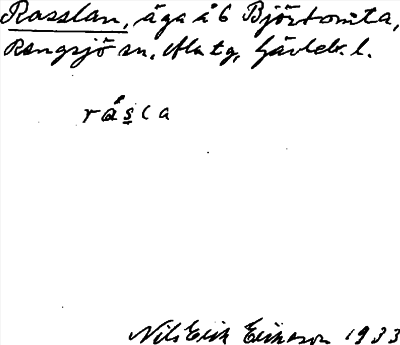 Rasslan, äga å 6 Björtomta,
Rengsjö sn, Ala tg, Gävleb. l.
råsla
Nils Erik Eriksson 1933